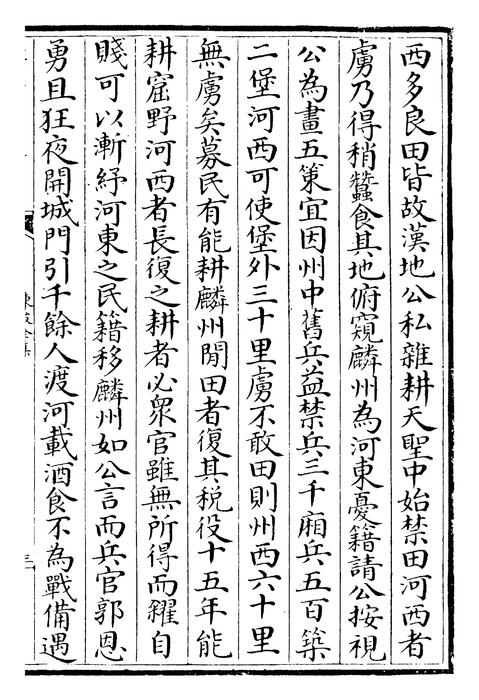 西多良田皆故漢地公私雜耕天聖中始禁田河西者
虜乃得稍蠶食其地俯窺麟州為河東憂籍請公按視
公為畫五策宜因州中舊兵益禁兵三千廂兵五百築
二堡河西可使堡外三十里虜不敢田則州西六十里
無虜矣募民有能耕麟州閒田者復其税役十五年能
耕窟野河西者長復之耕者必衆官雖無所得而糴自
賤可以漸紓河東之民籍移麟州如公言而兵官郭恩
勇且狂夜開城門引千餘人渡河載酒食不為戰備遇